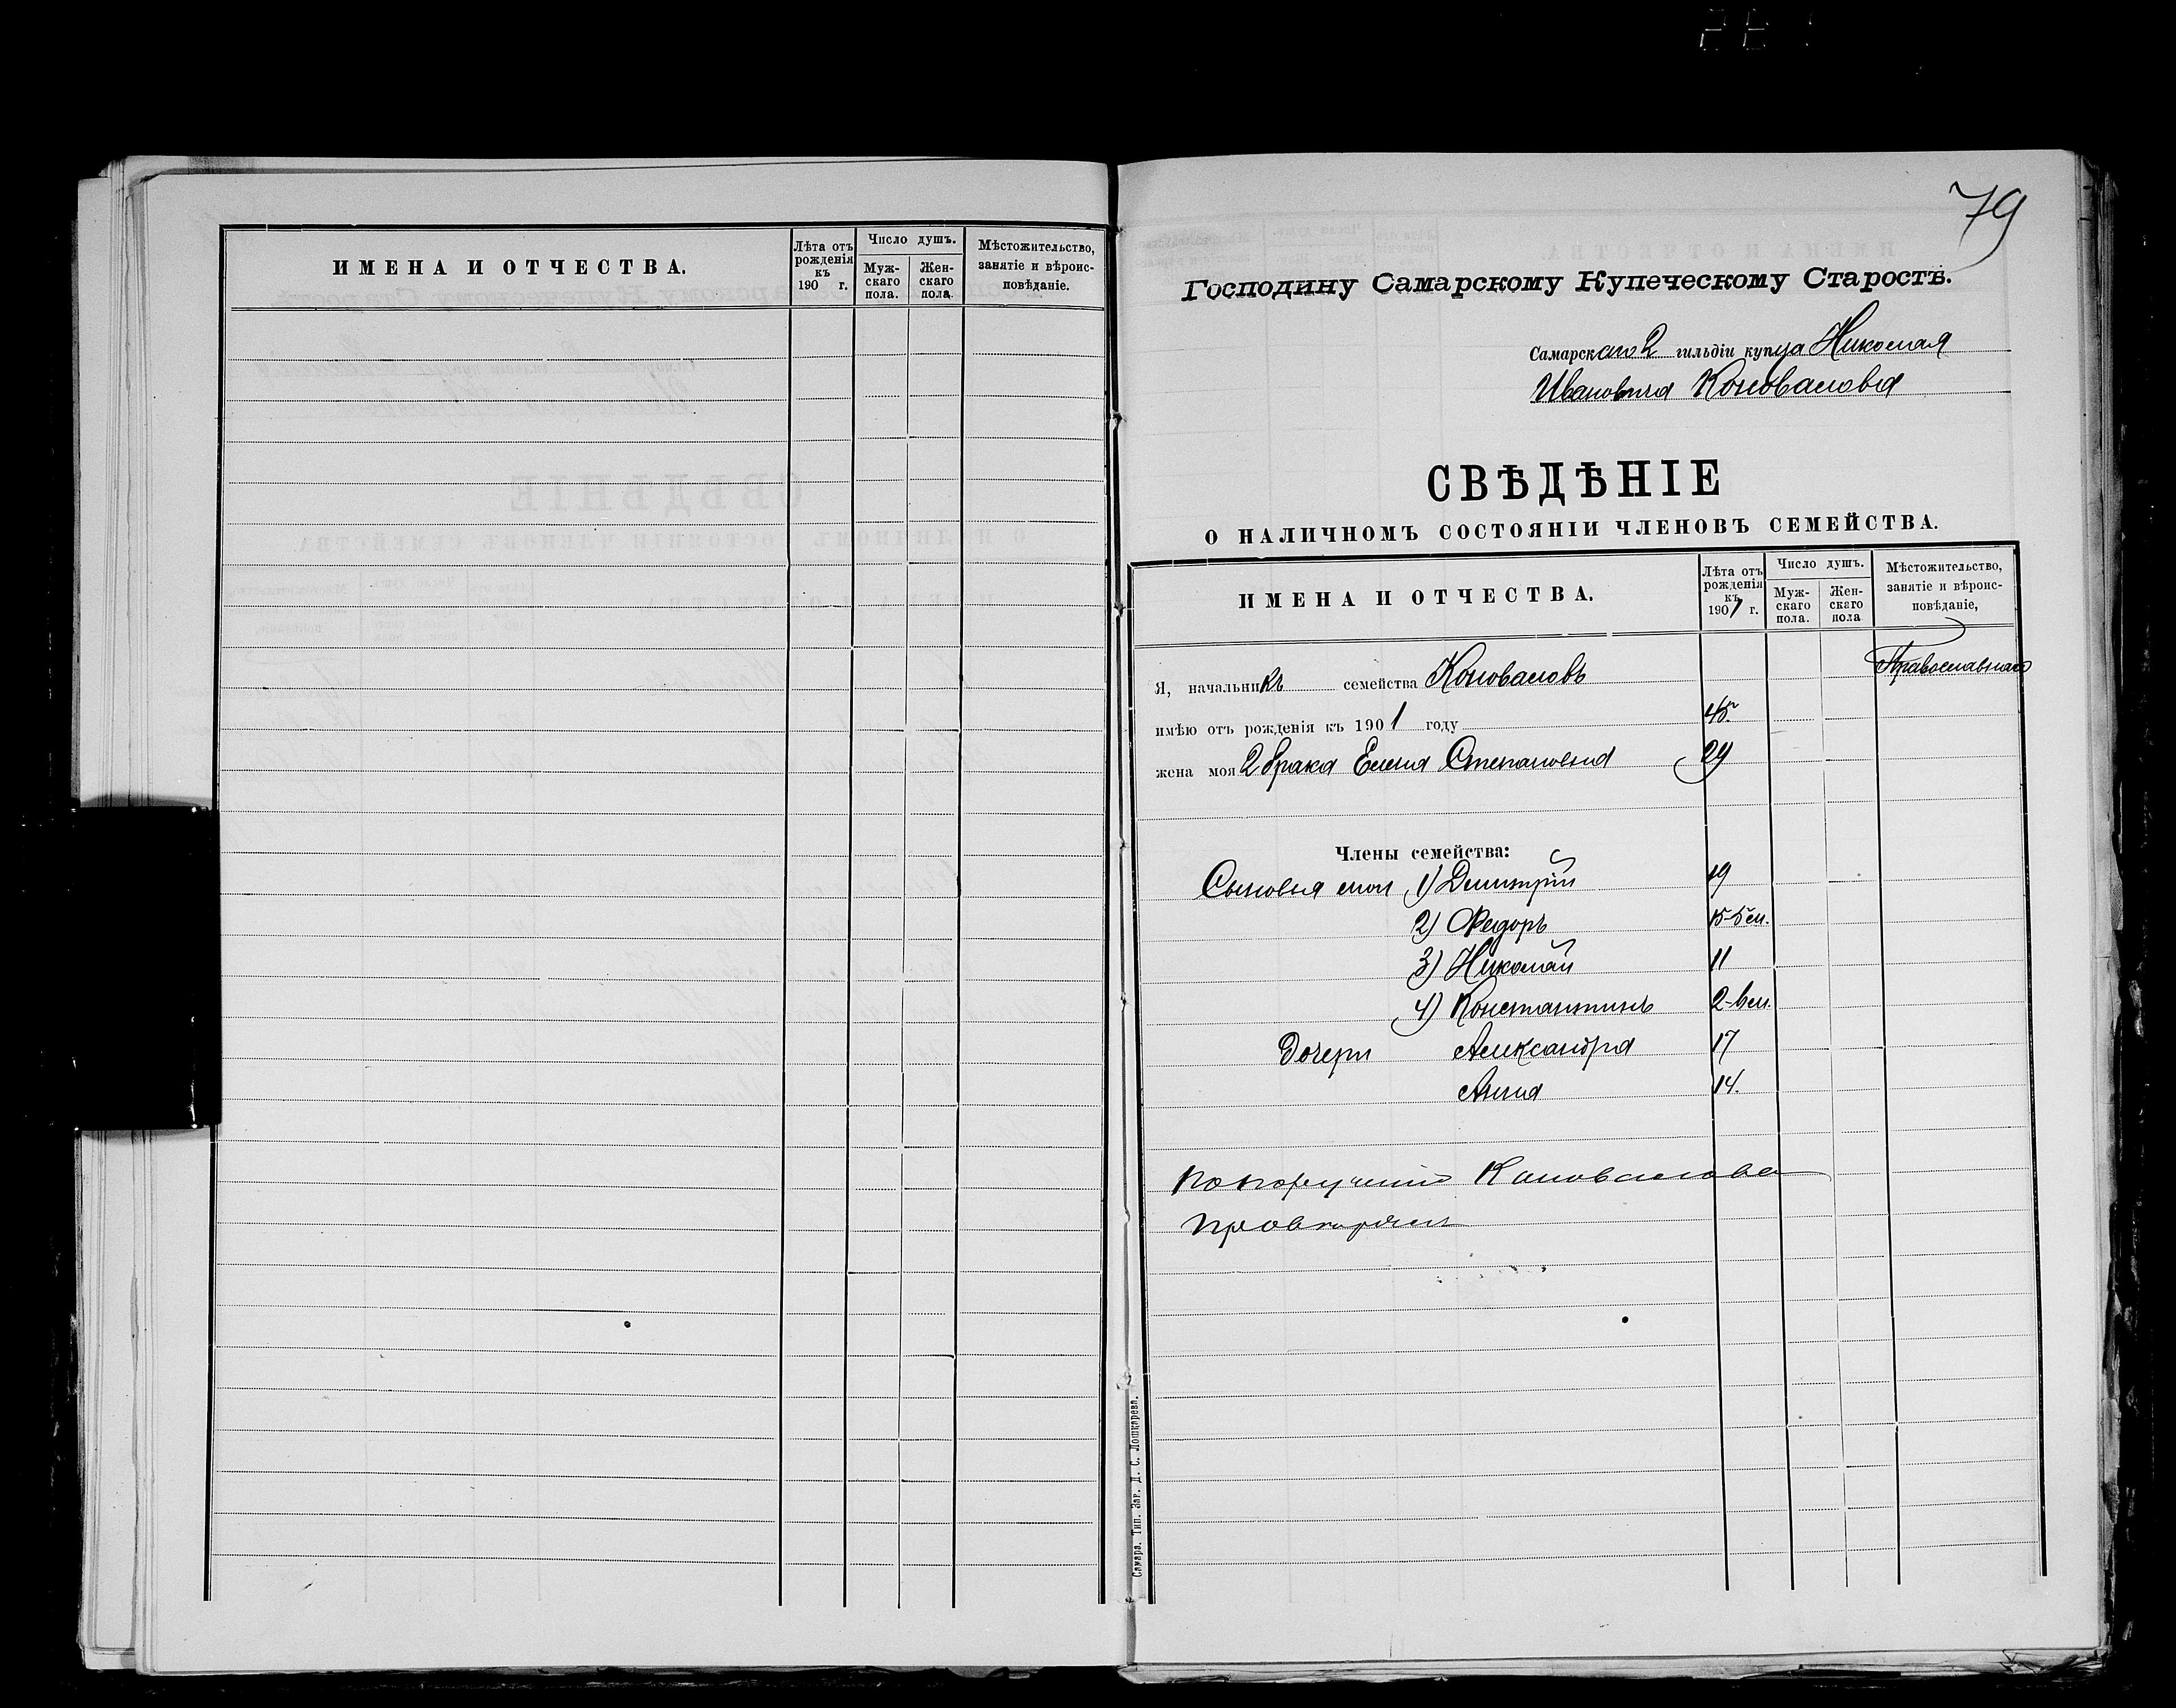 ИМЕНА И ОТЧЕСТВА.
Лѣта отъ рожденія къ 190 г.
Число душъ.
Мужскаго пола.
Женскаго пола.
Мѣстожительство, занятіе и вѣроисповѣданіе.
79
Господину Самарскому Купеческому Старостѣ.
Самарскаго 2 гильдіи купца Николая
Ивановича Коновалова
СВѢДѢНІЕ
О НАЛИЧНОМЪ СОСТОЯНІИ ЧЛЕНОВЪ СЕМЕЙСТВА.
ИМЕНА И ОТЧЕСТВА.
Лѣта отъ рожденія къ 1901 г.
Число душъ.
Мужскаго пола.
Женскаго пола
Мѣстожительство, занятіе и вѣроисповѣданіе,
Я, начальникъ семейства Коноваловъ Православнаго
имѣю отъ рожденія къ 1901 году 45
жена моя 2 брака Елена Степановна 29
Члены семейства:
Сыновья мои 1) Димитрій 19
2) Федоръ 15-5 м.
3) Николай 11
4) Константинъ 2-6 м.
Дочери Александра 17
Анна 14.
По порученію Коновалова
Самара. Тип. Заг. Д. С. Лошкарева.